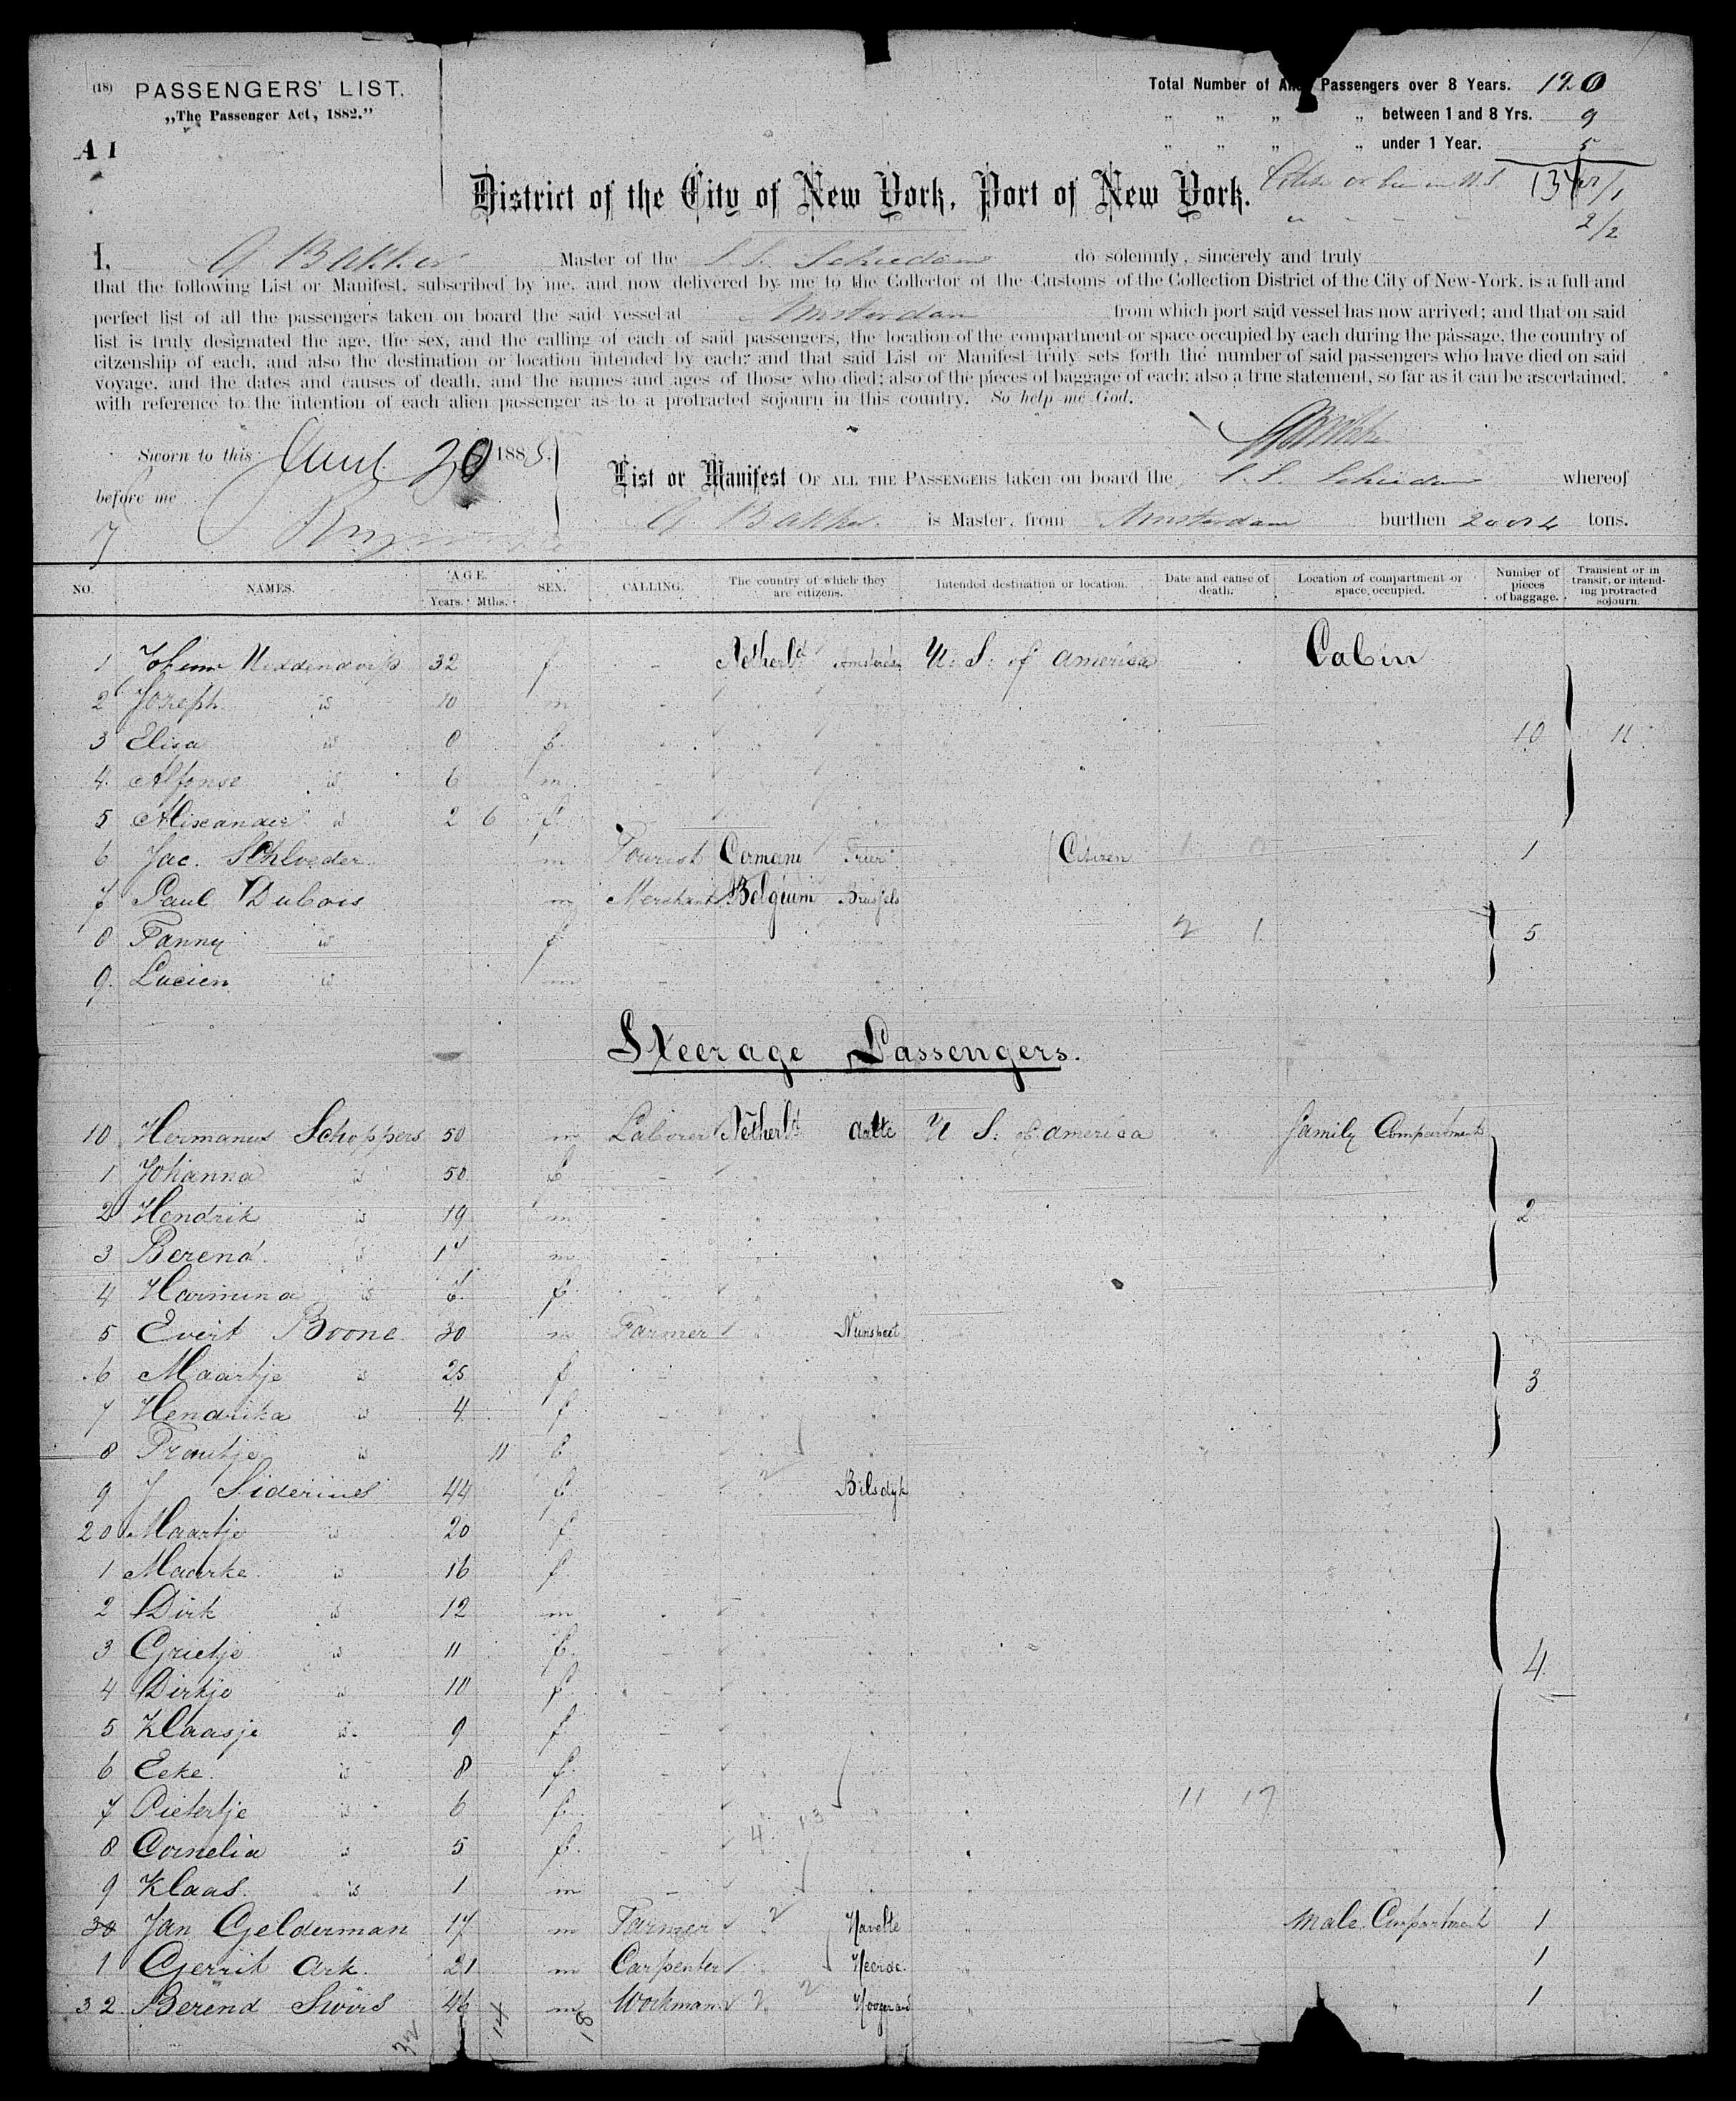 (18) PASSENGERS' LIST.
„The Passenger Act, 1882.”
A 1
Total Number of Passengers over 8 Years. 120
„ „ „ „ between 1 and 8 Yrs. 9
„ „ „ „ under 1 Year. 5
District of the City of New York, Port of New York.
I, G Bakker Master of the S.S. Schiedam do solemnly, sincerely and truly
that the following List or Manifest, subscribed by me, and now delivered by me to the Collector of the Customs of the Collection District of the City of New-York, is a full and
perfect list of all the passengers taken on board the said vessel at Amsterdam from which port said vessel has now arrived; and that on said
list is truly designated the age, the sex, and the calling of each of said passengers, the location of the compartment or space occupied by each during the passage, the country of
citzenship of each, and also the destination or location intended by each; and that said List or Manifest truly sets forth the number of said passengers who have died on said
voyage, and the dates and causes of death, and the names and ages of those who died; also of the pieces of baggage of each; also a true statement, so far as it can be ascertained,
with reference to the intention of each alien passenger as to a protracted sojourn in this country. So help me God.
Sworn to this 188
before me
List or Manifest OF ALL THE PASSENGERS taken on board the S.S. Schiedam whereof
G Bakker is Master, from Amsterdam burthen tons.
NO. NAMES. AGE. Years. Mths. SEX. CALLING. The country of which they are citizens. Intended destination or location. Date and cause of death. Location of compartment or space occupied. Number of pieces of baggage. Transient or in transit, or intending protracted sojourn.
1 32 f - Netherld Amsterdam U. S. of America Cabin
2 Joseph id 10 m
3 Elisa id f 10
4 Alfonse id 6 m
5 Alixander id 2 6 f
6 Jac. Schloeder m Tourist Germany Trier Citizen 1
7 Paul Dubois m Merchant Belgium Brussels
8 Fanny id f 2 1 5
9. Lucien id m
Steerage Passengers.
10 Hermanus Schoppers 50 m Laborer Netherld U S. of America family Compartment
1 Johanna id 50 f
2 Hendrik id 19 m 2
3 Berend id m
4 Harmina id f
5 Evert Boone 30 m Farmer Nunspeet
6 Maartje id 25 f 3
7 Hendrika id 4 f
8 id 11 f
9 J Siderius 44 f Bilsdyk
20 Maartje id 20 f
1 Maarke id 16 f
2 Dirk id 12 m
3 Grietje id 11 f
4 Dirkje id 10 f 4
5 Klaasje id 9 f
6 Eeke id 8 f
7 Pietertje id 6 f 11 17
8 Cornelia id 5 f 4 13
9 Klaas id 1 m
30 Jan Gelderman 17 m Farmer Havelte Male Compartment 1
1 Gerrit Ark 21 m Carpenter Heerde 1
32 Berend 46 m Workman 1
32 14 18